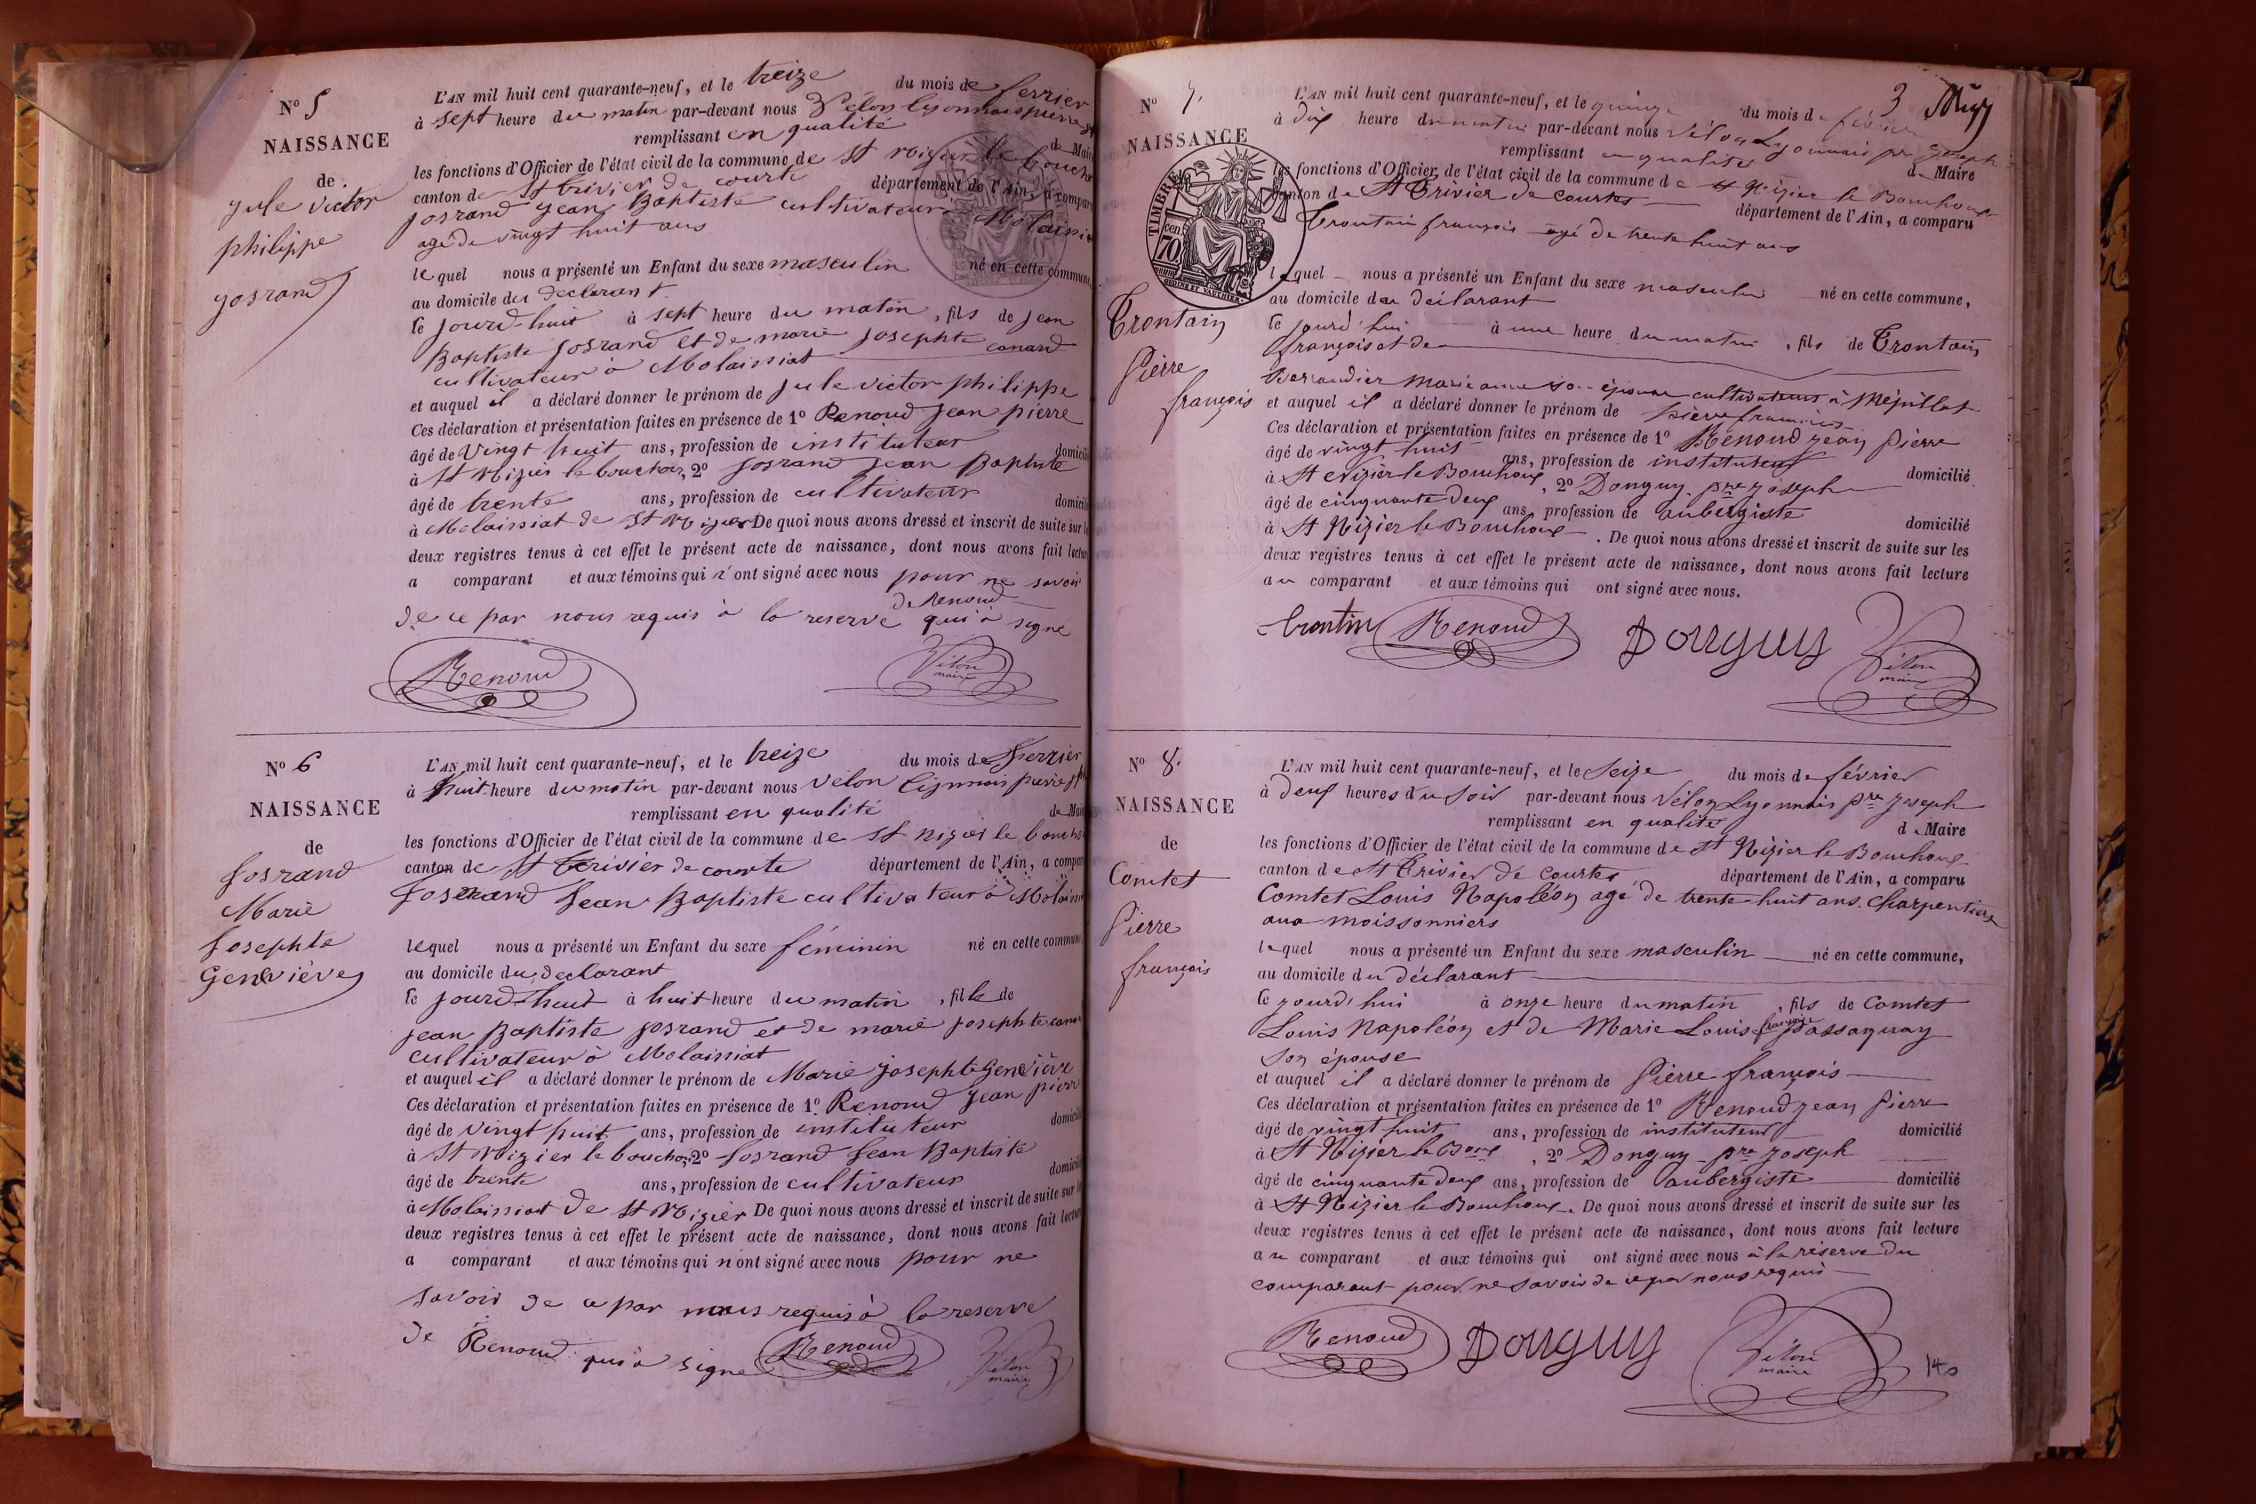 N° 5
NAISSANCE
de
jule victor
philippe
josrand
L'AN mil huit cent quarante-neuf, et le treize du mois de ferrier
à sept heure du matin par-devant nous Vélon lyonnais pierre
remplissant en qualité de Mai
les fonctions d'Officier de l'état civil de la commune de St nizier le boucho
canton de St trivier de courte département de l'Ain, a compar
josrand jean Baptiste cultivateur Molaissia
agé de vingt huit ans
lequel nous a présenté un Enfant du sexe masculin né en cette commune,
au domicile du declarant
le jourd-huit à sept heure du matin, fils de jean
Baptiste josrand et de marie josephte canard
cultivateur à Molaissiat
et auquel il a déclaré donner le prénom de jule victor philippe
Ces déclaration et présentation faites en présence de 1° Renoud jean pierre
âgé de Vingt huit ans, profession de instituteur domicili
à St Nizier le bouchoz, 2° josrand jean Baptiste
âgé de trente ans, profession de cultivateur domicili
à Molaissiat de St Nizier De quoi nous avons dressé et inscrit de suite sur le
deux registres tenus à cet effet le présent acte de naissance, dont nous avons fait lectur
a comparant et aux témoins qui n'ont signé avec nous pour ne savoir
de ce par nous requis à la reserve de Renoud qui à signé
Renoud
Vélon
maire
N° 6
NAISSANCE
de
Josrand
Marie
Josephte
Geneviève
L'AN mil huit cent quarante-neuf, et le treize du mois de ferrier
à huit heure du matin par-devant nous Vélon Lyonnais pierre
remplissant en qualité de Mai
les fonctions d'Officier de l'état civil de la commune de St nizier le boucho
canton de St trivier de courte département de l'Ain, a compar
Josrand Jean Baptiste cultivateur à Molaissi
lequel nous a présenté un Enfant du sexe féminin né en cette commune
au domicile du declarant
le jourd-huit à huit heure du matin, fille de
jean Baptiste josrand et de marie josephte canar
cultivateur à Molaissiat
et auquel il a déclaré donner le prénom de Marie josephte Geneviève
Ces déclaration et présentation faites en présence de 1° Renoud jean pierr
âgé de Vingt huit ans, profession de instituteur domicili
à St Nizier le bouchoz, 2° Josrand Jean Baptiste
âgé de trente ans, profession de cultivateur domicili
à Molaissiat de St Nizier De quoi nous avons dressé et inscrit de suite sur le
deux registres tenus à cet effet le présent acte de naissance, dont nous avons fait lectur
a comparant et aux témoins qui n'ont signé avec nous pour ne
savoir de ce par nous requis à la reserve
de Renoud qui à signé Renoud
Vélon
maire
3
N° 7.
NAISSANCE
TIMBRE
70
cen.
Trontain
Pierre
françois
L'AN mil huit cent quarante-neuf, et le quinze du mois de février
à dix heure du matin par-devant nous Vélon Lyonnais pre joseph
remplissant en qualité de Maire
les fonctions d'Officier de l'état civil de la commune de St Nizier le Bouchoux
canton de St Trivier de Courtes département de l'Ain, a comparu
Trontain françois agé de trente huit ans
lequel nous a présenté un Enfant du sexe masculin né en cette commune,
au domicile du déclarant
le jourd'hui à une heure du matin, fils de Trontain
françois et de
Marie anne son épouse cultivateurs à Mépillat
et auquel il a déclaré donner le prénom de pierre françois
Ces déclaration et présentation faites en présence de 1° Renoud jean Pierre
âgé de vingt huit ans, profession de instituteur domicilié
à St Nizier le Bouchoux, 2° Donguy pre joseph
âgé de cinquante deux ans, profession de aubergiste domicilié
à St Nizier le Bouchoux. De quoi nous avons dressé et inscrit de suite sur les
deux registres tenus à cet effet le présent acte de naissance, dont nous avons fait lecture
au comparant et aux témoins qui ont signé avec nous.
trontin Renoud Donguy Vélon
maire
N° 8.
NAISSANCE
de
Comtet
Pierre
françois
L'AN mil huit cent quarante-neuf, et le seize du mois de février
à deux heures du soir par-devant nous Vélon Lyonnais pre joseph
remplissant en qualité de Maire
les fonctions d'Officier de l'état civil de la commune de St Nizier le Bouchoux
canton de St Trivier de Courtes département de l'Ain, a comparu
Comtet Louis Napoléon agé de trente huit ans. charpentier
aux moissonniers
lequel nous a présenté un Enfant du sexe masculin né en cette commune,
au domicile du déclarant
le jourd'hui à onze heure du matin, fils de Comtet
Louis Napoléon et de Marie Louise françoise passaquay
son épouse
et auquel il a déclaré donner le prénom de Pierre françois
Ces déclaration et présentation faites en présence de 1° Renoud jean Pierre
âgé de vingt huit ans, profession de instituteur domicilié
à St Nizier le Boux, 2° Donguy pre joseph
âgé de cinquante deux ans, profession de aubergiste domicilié
à St Nizier le Bouchoux. De quoi nous avons dressé et inscrit de suite sur les
deux registres tenus à cet effet le présent acte de naissance, dont nous avons fait lecture
au comparant et aux témoins qui ont signé avec nous à la réserve du
comparant pour ne savoir de ce par nous requis
Renoud Donguy Vélon
maire